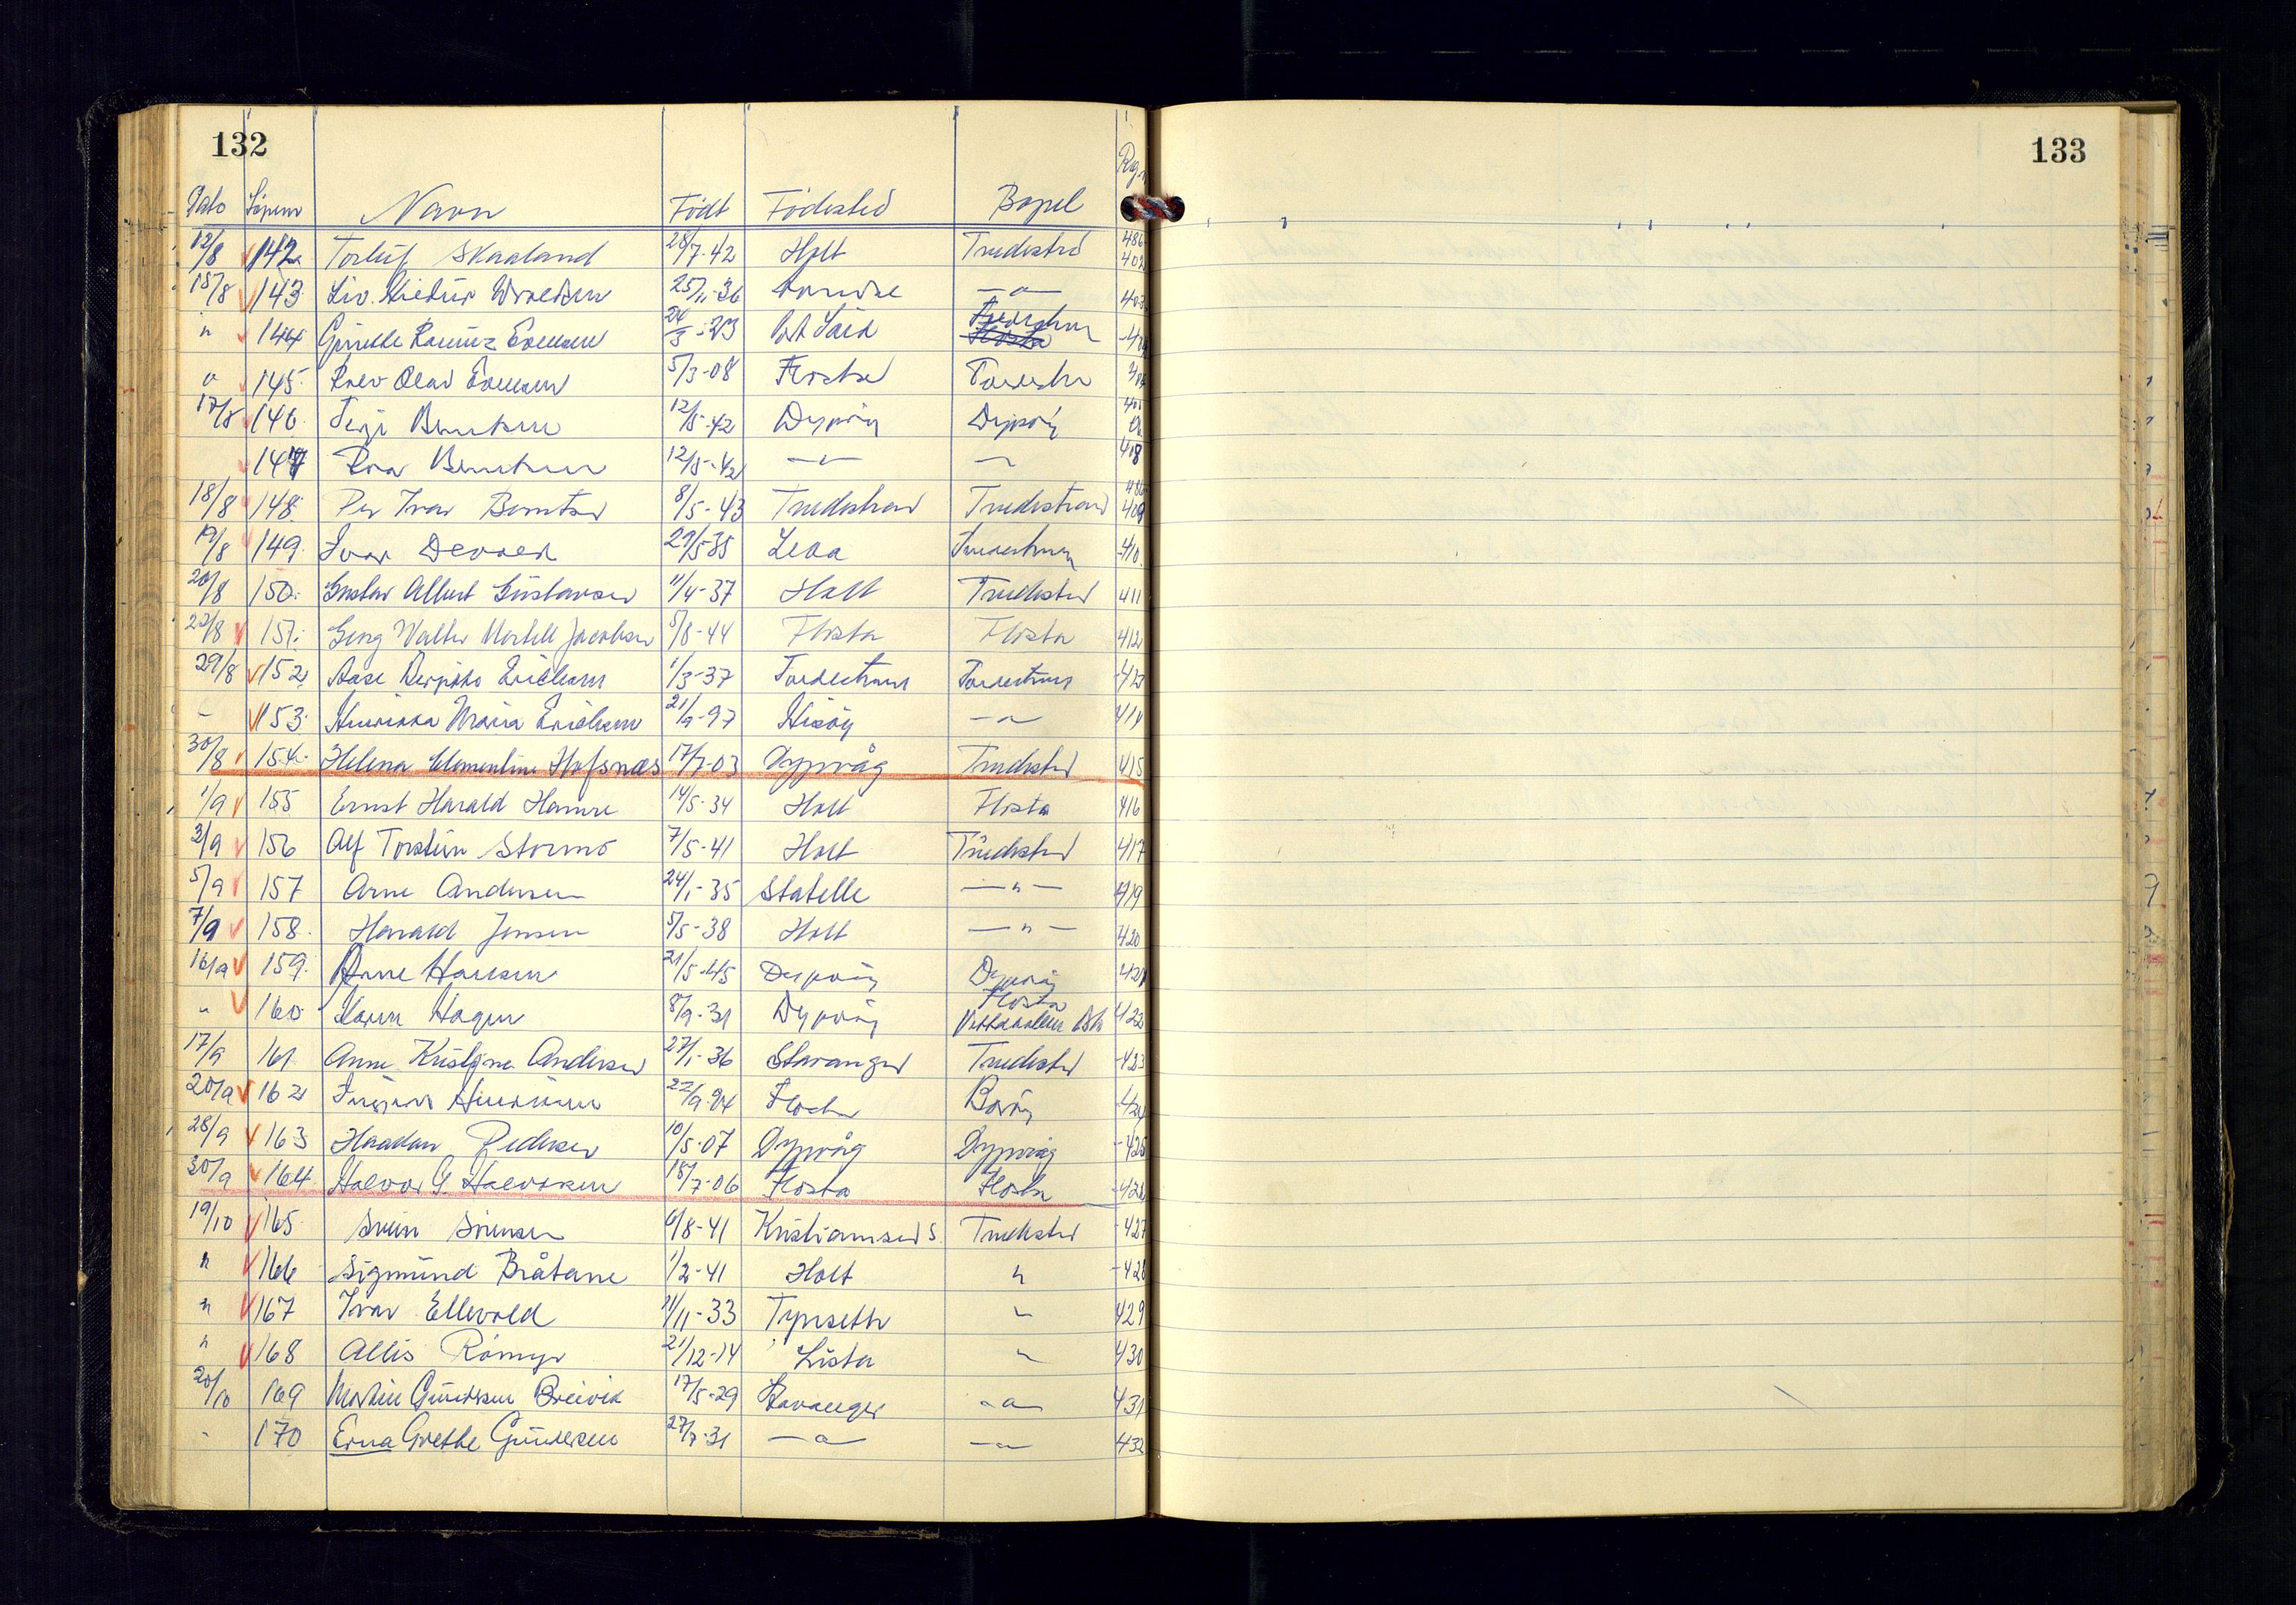 132
133
Dato Löpenr Navn Född Födested Bopel Reg.n
12/8 142 Torleif Skaaland 28/7-42 Holt Tvedestrd 402
15/8 143. Liv 25/11-36 —"— 403
" 144 Rasmus 24/3-23 Port Said Flosta
" 145. Olav 5/3-08 Flosta
17/8 146. Terje Berntsen 12/5-42 Dypvåg Dypvåg
147 Roar Berntsen 12/5-42 —"— — 408
18/8 148. Per Ivar Berntsen 8/5-43 Tvedestrand Tvedestrand 409
19/8 149. Ivar 29/5-35 Leka Tvedestrand 410.
20/8 150. Gustav Albert Gustavsen 11/4-37 Holt Tvedestrd 411
22/8 151. Georg Walter Jacobsen 5/8-44 Flosta Flosta 412
29/8 152. Aase Ericksen 1/3-37 Tvedestrand Tvedestrand 413
- 153. Maria Ericksen 21/9-97 Hisöy —"— 414
30/8 154. Helena Clementine Hofsnæs 17/7-03 Dypvåg Tvedestrd 415
1/9 155 Ernst Harald Hamre 14/5-34 Holt Flosta 416
3/9 156 Alf Torstein Stormo 7/5-41 Holt Tvedestrd 417
5/9 157 Arne Andersen 24/1-35 Statelle —"— 419
7/9 158. Harald Jensen 5/5-38 Holt —"— 420
16/9 159. Arne Hansen 21/5-45 Dypvåg Dypvåg 421
" 160. Karen Hagen 8/9-31 Dypvåg Flosta 422
17/9 161. Anne Kristine Andersen 27/1-36 Stavanger Tvedestrd 423
20/9 162 22/9-24 Flosta Borøy 424
28/9 163 Haakon Pedersen 10/5-07 Dypvåg Dypvåg 425
30/9 164. Halvor G. Halvorsen 18/7-06 Flosta Flosta 426
19/10 165 Svein Sörensen 6/8-41 Kristiansand S. Tvedestrd 427
" 166 Sigmund Bråtane 1/2-41 Holt " 428
" 167 Ivar Ellevold 11/11-33 " 429
" 168 Allis Römyr 21/12-14 Lista " 430
20/10 169 Martin Gundersen Breivik 17/5-29 Stavanger -"- 431
- 170 Erna Grethe Gundersen 27/7-31 —"— —"— 432